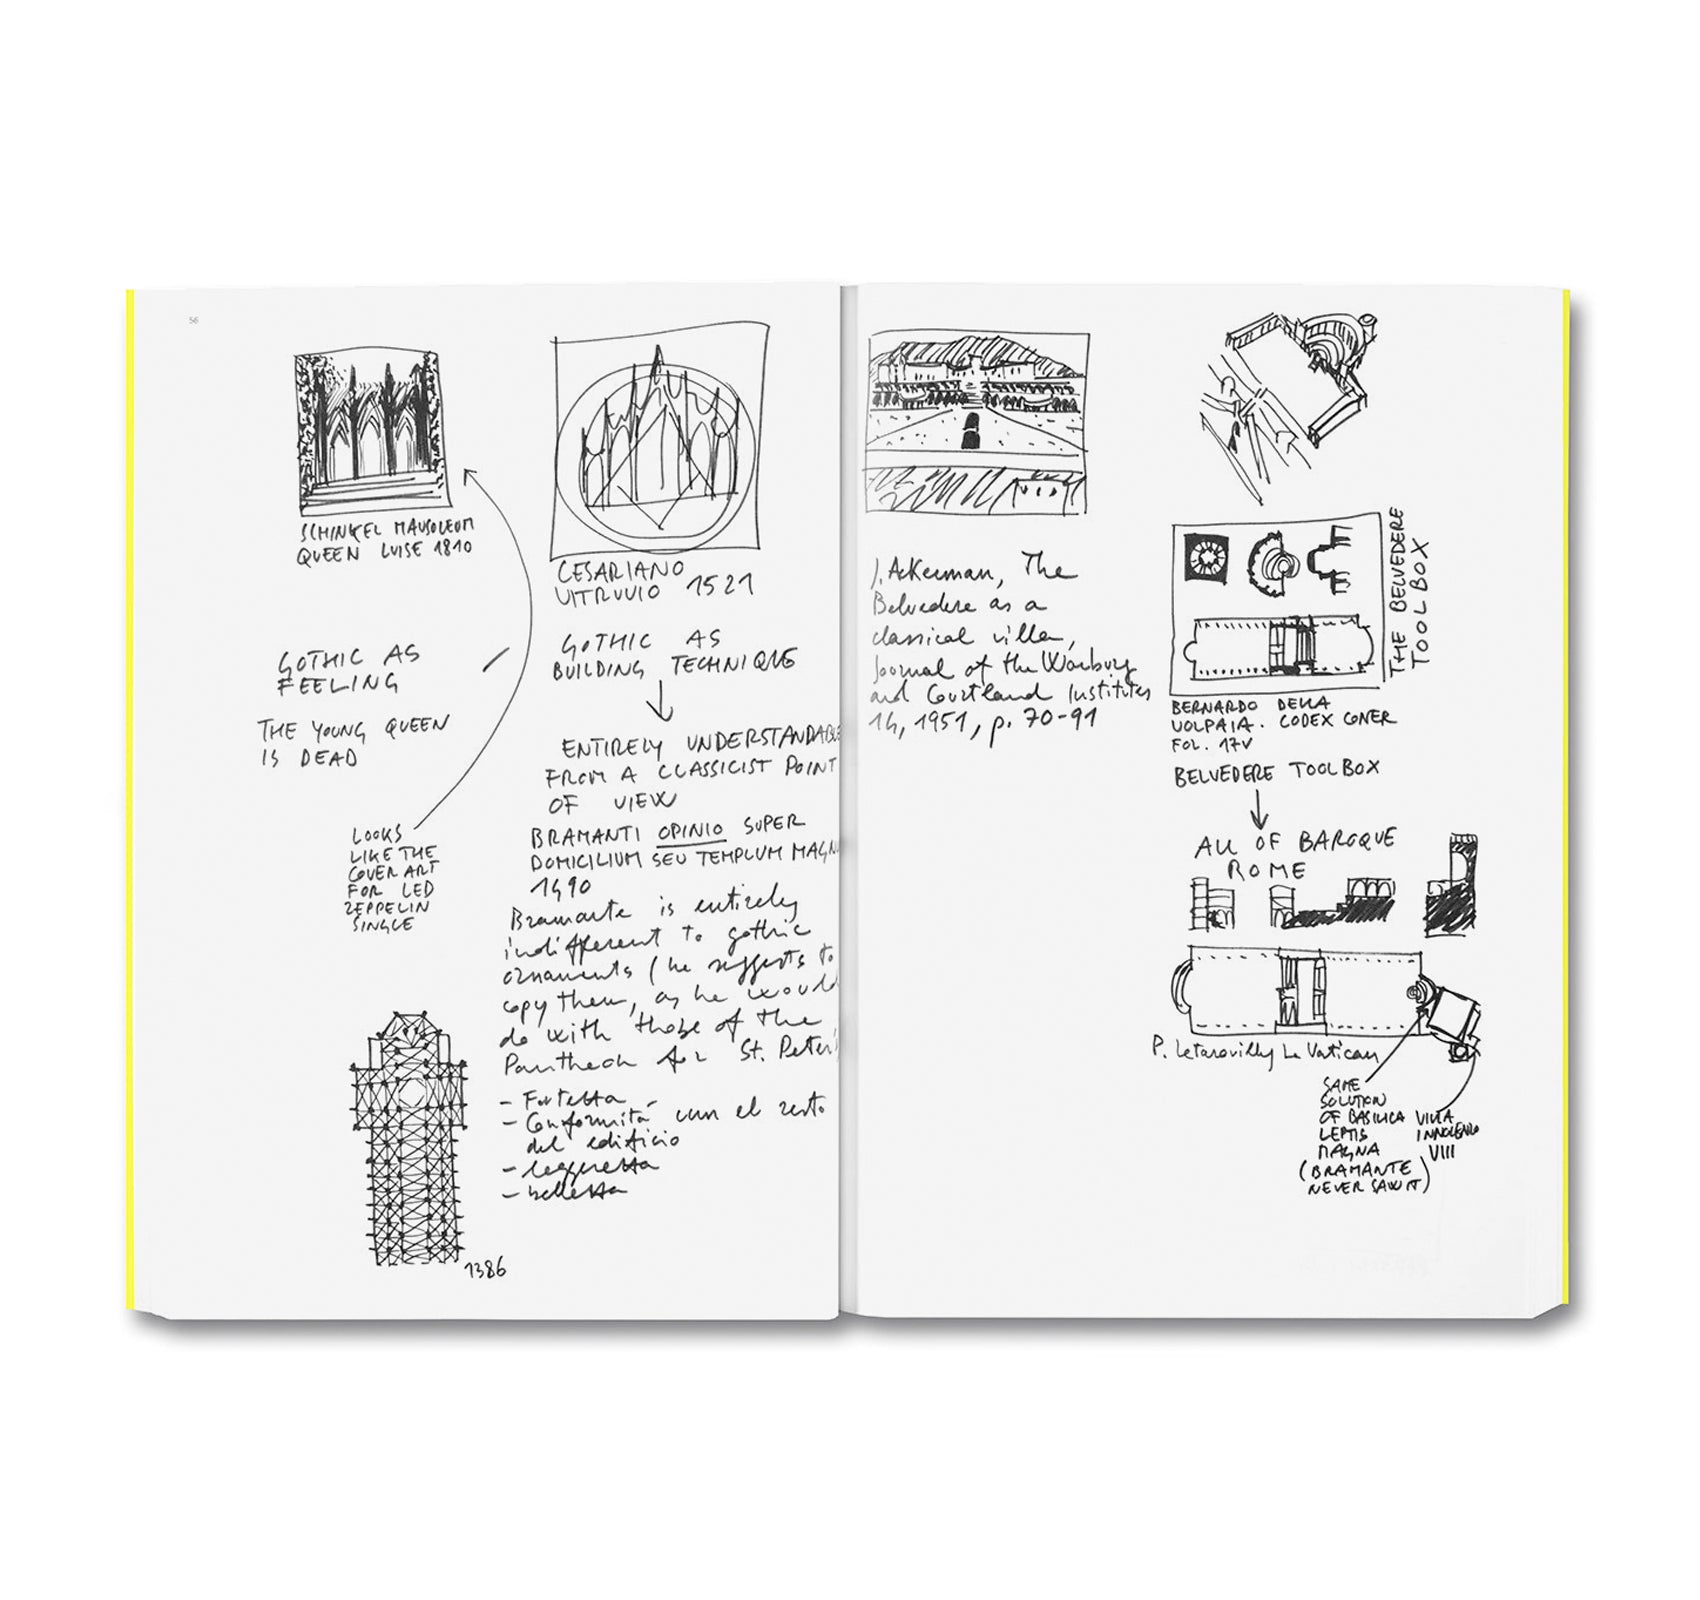 56
SCHINKEL MAUSOLEUM
QUEEN LUISE 1810
GOTHIC AS
FEELING
THE YOUNG QUEEN
IS DEAD
LOOKS
LIKE THE
COVER ART
FOR LED
ZEPPELIN
SINGLE
1386
CESARIANO
VITRUVIO 1521
GOTHIC AS
BUILDING TECHNIQUE
ENTIRELY UNDERSTANDABLE
FROM A CLASSICIST POINT
OF VIEW
BRAMANTI OPINIO SUPER
DOMICILIUM SEU TEMPLUM MAGN
1490
Bramante is entirely
indifferent to gothic
ornaments (he suggests to
copy them, as he would
do with those of the
Pantheon for St. Peter's
- Fortezza
- Conformità cum el resto
del edificio
- leggerezza
- bellezza
J. Ackerman, The
Belvedere as a
classical villa,
Journal of the Warburg
and Courtland Institutes
14, 1951, p. 70-91
THE BELVEDERE
TOOLBOX
BERNARDO DELLA
VOLPAIA. CODEX CONER
FOL. 17V
BELVEDERE TOOLBOX
ALL OF BAROQUE
ROME
P. Letarouilly Le Vatican
SAME
SOLUTION
OF BASILICA
LEPTIS
MAGNA
(BRAMANTE
NEVER SAW IT)
VILLA
INNOCENZO
VIII